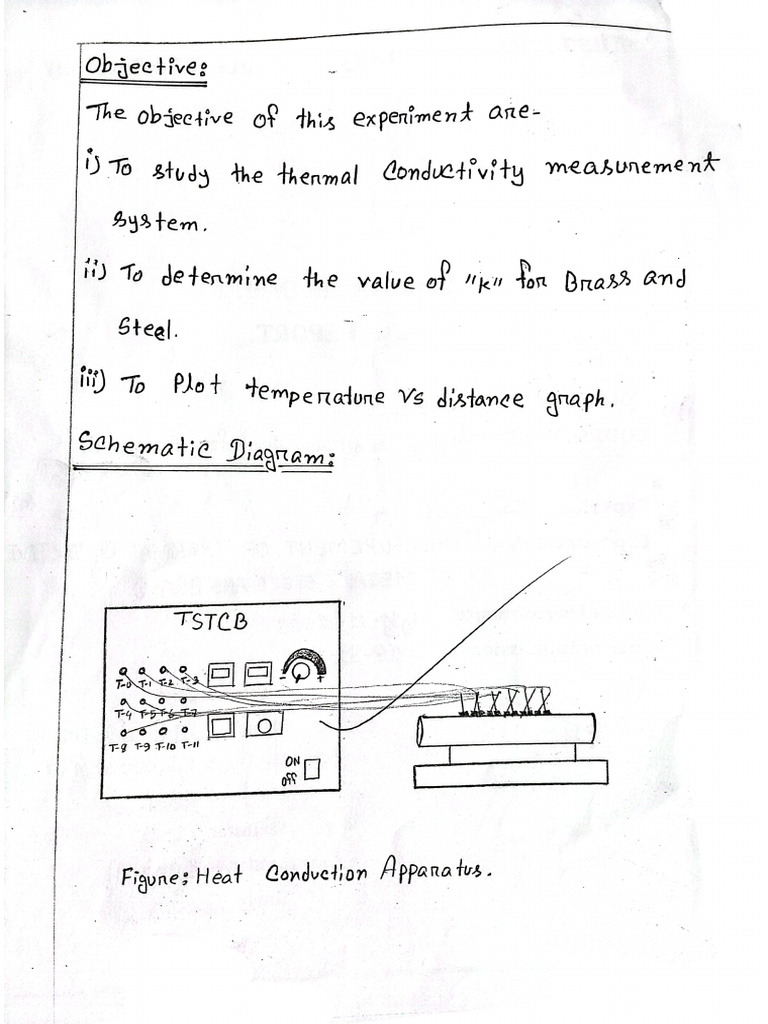 Objective:
The objective of this experiment are-
i) To study the thermal conductivity measurement
system.
ii) To determine the value of "K" for Brass and
Steel.
iii) To Plot temperature vs distance graph.
Schematic Diagram:
TSTCB
T-0 T-1 T-2 T-3
- +
T-4 T-5 T-6 T-7
T-8 T-9 T-10 T-11
ON
OFF
Figure: Heat Conduction Apparatus.